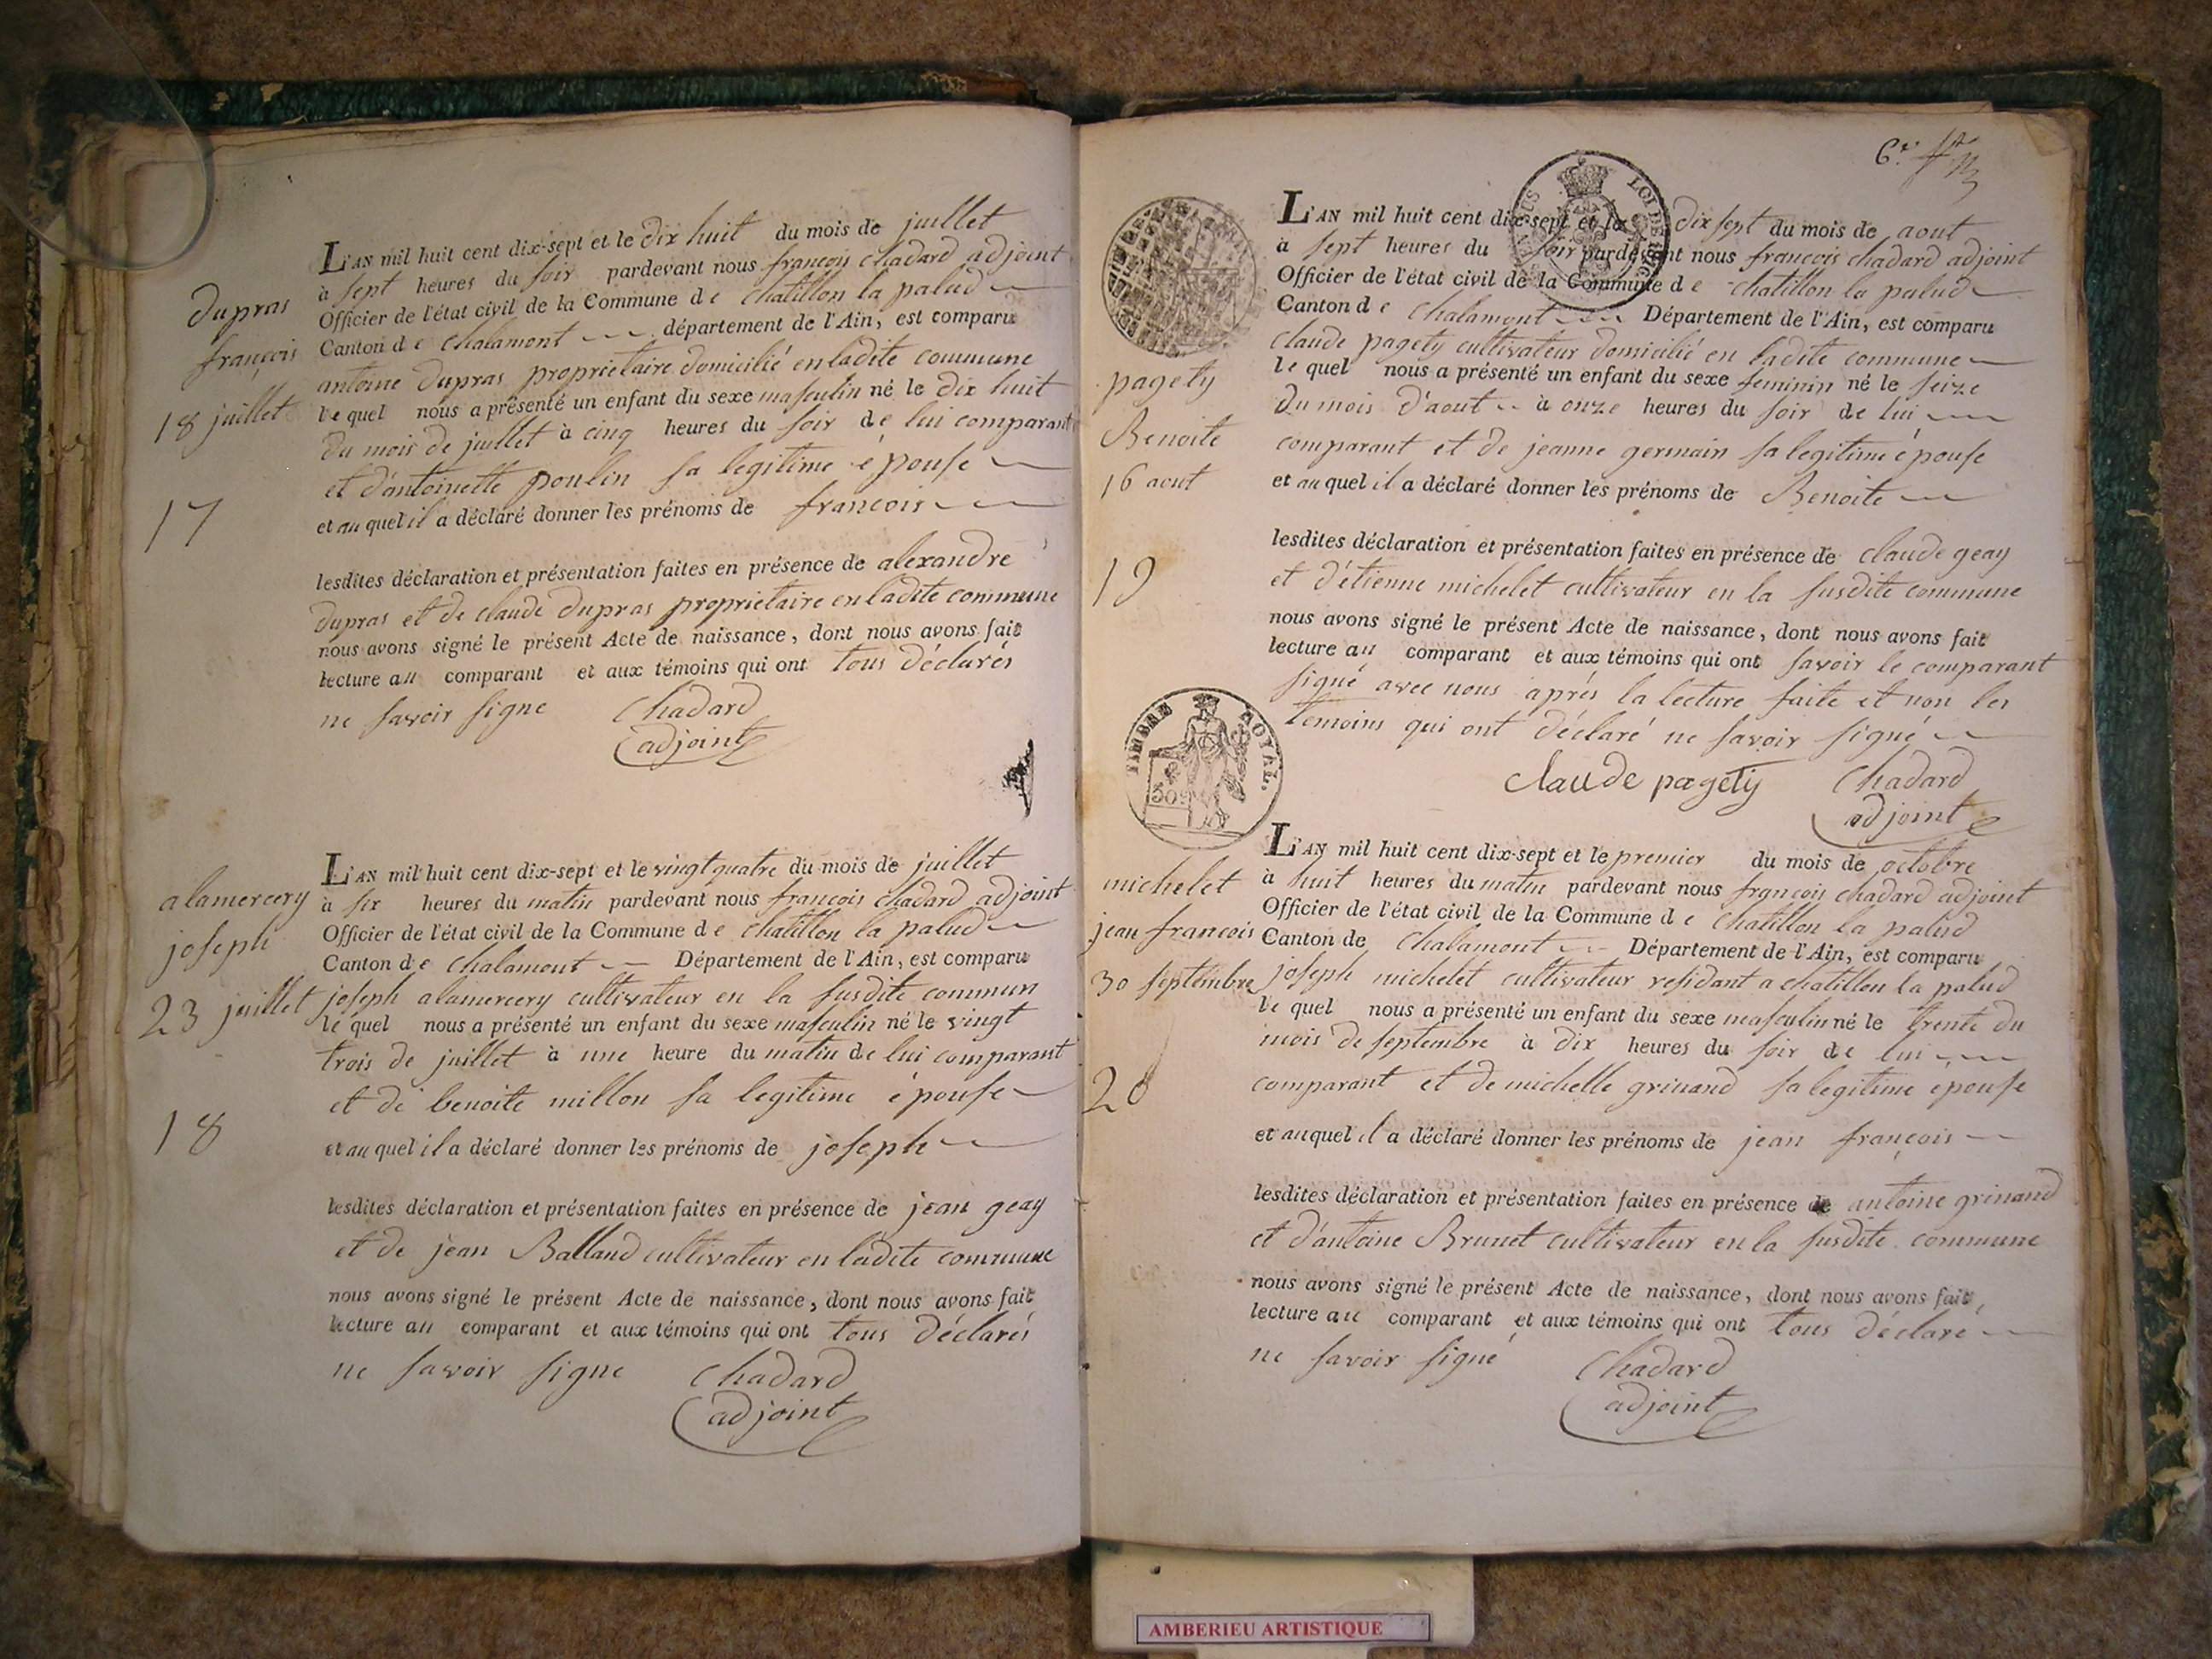 dupras
françois
18 juillet
17
L'AN mil huit cent dix-sept et le dix huit du mois de juillet
à sept heures du soir pardevant nous françois chadard adjoint
Officier de l'état civil de la Commune de chatillon la palud
Canton de chalamont département de l'Ain, est comparu
antoine dupras proprietaire domicilié en ladite commune
le quel nous a présenté un enfant du sexe masculin né le dix huit
du mois de juillet à cinq heures du soir de lui comparant
et d'antoinette poulin sa legitime épouse
et au quel il a déclaré donner les prénoms de francois
lesdites déclaration et présentation faites en présence de alexandre
dupras et de claude dupras proprietaire en ladite commune
nous avons signé le présent Acte de naissance, dont nous avons fait
lecture au comparant et aux témoins qui ont tous déclarés
ne savoir signe Chadard
adjoint
alamercery
joseph
23 juillet
18
L'AN mil huit cent dix-sept et le vingt quatre du mois de juillet
à six heures du matin pardevant nous francois chadard adjoint
Officier de l'état civil de la Commune de chatillon la palud
Canton de chalamont Département de l'Ain, est comparu
joseph alamercery cultivateur en la susdite commun
le quel nous a présenté un enfant du sexe masculin né le vingt
trois de juillet à une heure du matin de lui comparant
et de benoite millon sa legitime épouse
et au quel il a déclaré donner les prénoms de joseph
lesdites déclaration et présentation faites en présence de jean geay
et de jean Balland cultivateur en ladite commune
nous avons signé le présent Acte de naissance, dont nous avons fait
lecture au comparant et aux témoins qui ont tous déclarés
ne savoir signe Chadard
adjoint
6.e
pagety
Benoite
16 aout
19
L'AN mil huit cent dix-sept et le dix sept du mois de aout
à sept heures du soir pardevant nous francois chadard adjoint
Officier de l'état civil de la Commune de chatillon la palud
Canton de chalamont Département de l'Ain, est comparu
claude pagety cultivateur domicilié en ladite commune
le quel nous a présenté un enfant du sexe feminin né le seize
du mois d'aout à onze heures du soir de lui
comparant et de jeanne germain sa legitime épouse
et au quel il a déclaré donner les prénoms de Benoite
lesdites déclaration et présentation faites en présence de claude geay
et d'étienne michelet cultivateur en la susdite commune
nous avons signé le présent Acte de naissance, dont nous avons fait
lecture au comparant et aux témoins qui ont savoir le comparant
signé avec nous après la lecture faite et non les
témoins qui ont déclaré ne savoir signé
claude pagety Chadard
adjoint
TIMBRE ROYAL.
50
michelet
jean francois
30 septembre
20
L'AN mil huit cent dix-sept et le premier du mois de octobre
à huit heures du matin pardevant nous françois chadard adjoint
Officier de l'état civil de la Commune de chatillon la palud
Canton de chalamont Département de l'Ain, est comparu
joseph michelet cultivateur residant a chatillon la palud
le quel nous a présenté un enfant du sexe masculin né le trente du
mois de septembre à dix heures du soir de lui
comparant et de michelle grinand sa legitime épouse
et au quel il a déclaré donner les prénoms de jean françois
lesdites déclaration et présentation faites en présence de antoine grinand
et d'antoine Brunet cultivateur en la susdite commune
nous avons signé le présent Acte de naissance, dont nous avons fait
lecture au comparant et aux témoins qui ont tous déclaré
ne savoir signé Chadard
adjoint
AMBERIEU ARTISTIQUE